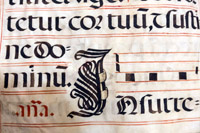 tetur cor tuū, & susti
ne do=
minū.
aña. I Nsurre=